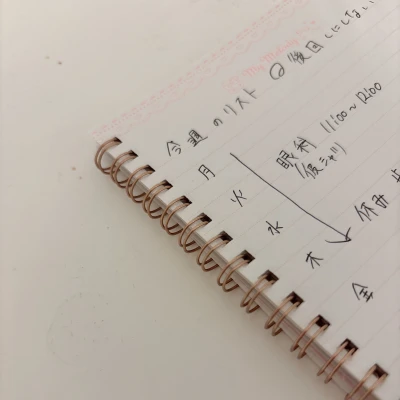 今週のリスト @後回しにしない
月 眼科 11:00~12:00
火
水
木 休み
金